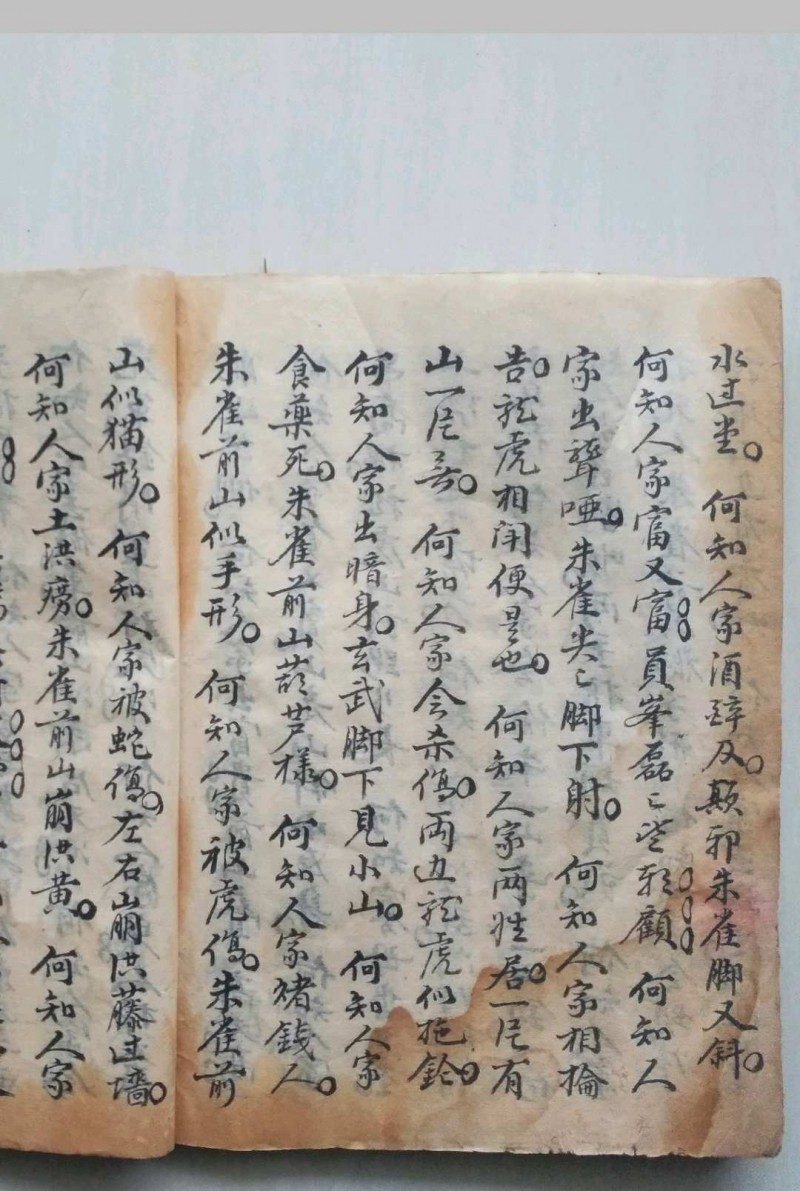 水过堂。何知人家酒醉及。颠邪朱雀脚又斜。
何知人家富又富。員峯磊〻皆朝顧。何知人
家出聾啞。朱雀尖〻脚下射。何知人家相掄
告。龍虎相闬便是也。何知人家两姓居。一片有
山一片無。何知人家会杀傷。両边龍虎似拖鎗。
何知人家出暗身。玄武脚下見小山。何知人家
食藥死。朱雀前山葫芦樣。何知人家猪錢人。
朱雀前山似手形。何知人家被虎傷。朱雀前
山似猫形。何知人家被蛇傷。左右崩洪藤过墙。
何知人家土洪癆。朱雀前山崩洪黄。何知人家